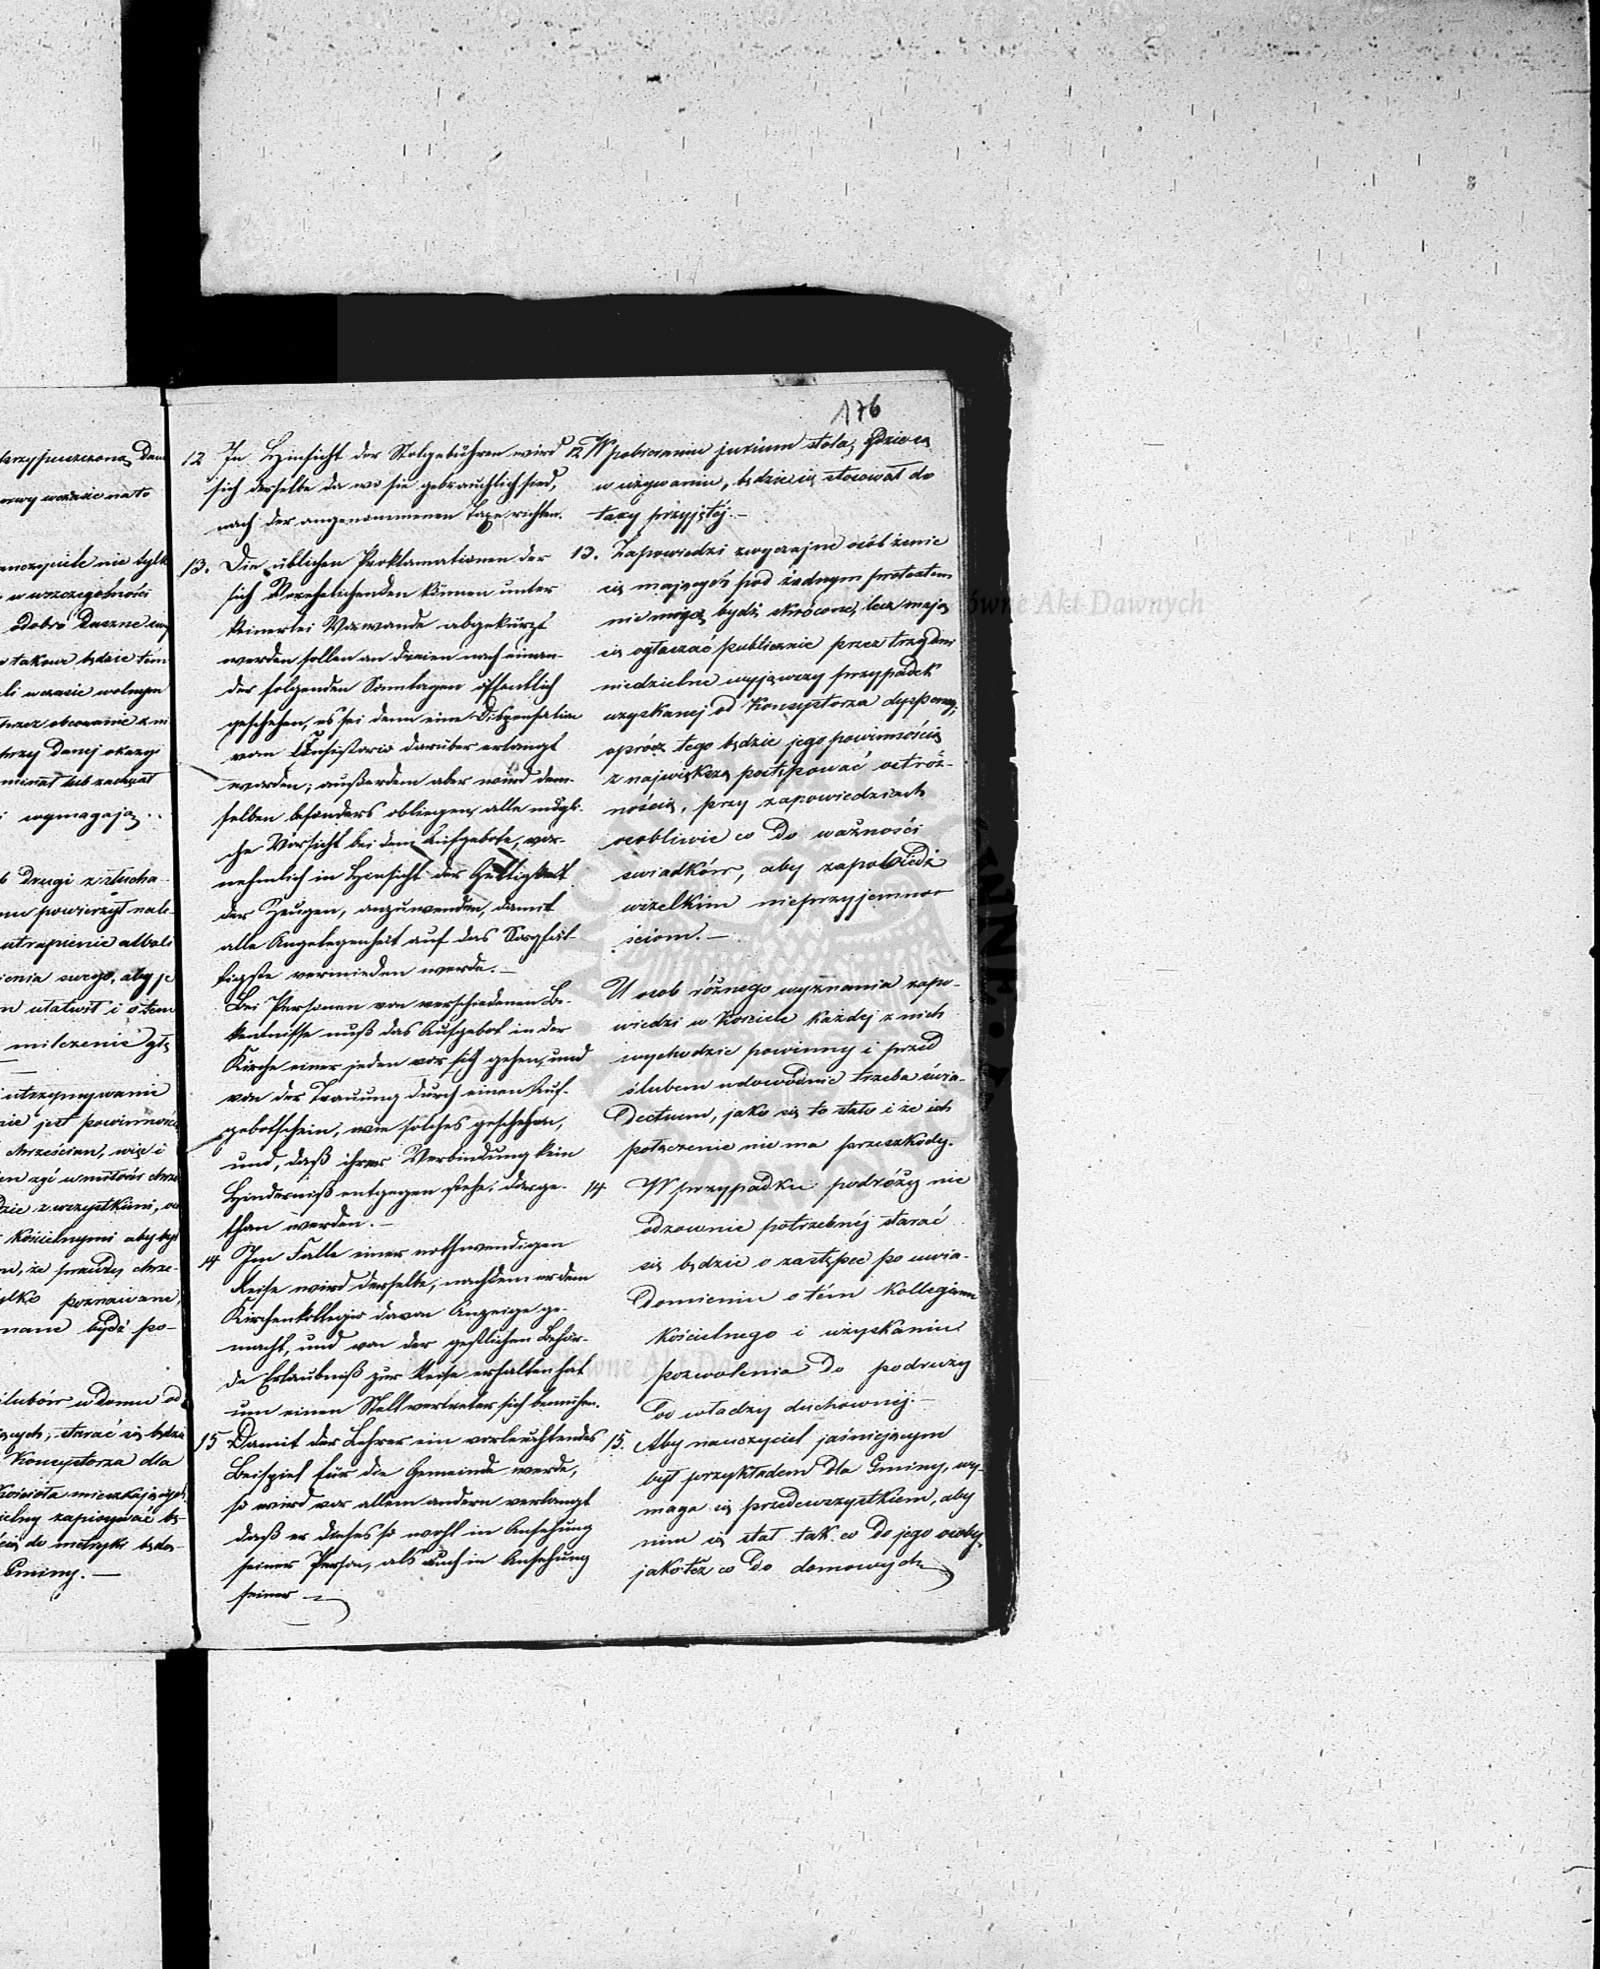 176
przypuszczoną dam
nie tylk
w wszczególności
takowe będzie tém
w czasie wolnym
przy danej okazyi
wymagają..
drugi z słucha-
powierzył nale-
utrapienie albo li
swego, aby je
ułatwił i o tem
milczenie
utrzymywanie
jest powinnośc
chrześcian, więc i
z wszystkiemi,
kościelnymi aby był
poznawane,
bydź po-
ślubów w domu od
starać się będzie
Konsystorza dla
kościoła mieszkających
zapisywać bę-
do metryk będą-
Gminy. —
12 In Hinsicht der Stolgebühren wird
sich derselbe da wo sie gebräuchlich sind,
nach der angenommenen Taxe richten.
13. Die üblichen Proklamationen der
sich Verehelichenden können unter
keinerlei Vorwande abgekürzt
werden sollen an dreien nach einan-
der folgenden Sonntagen öffentlich
geschehen, es sei denn eine Dispensation
vom Consistorio darüber erlangt
worden; außerdem aber wird dem-
selben besonders obliegen alle mögli-
che Vorsicht bei dem Aufgebote, vor-
nehmlich in Hinsicht der Gültigkeit
der Zeugen, anzuwenden, damit
alle Angelegenheit auf das Sorgfäl-
tigste vermieden werde. —
Bei Personen von verschiedenen Be-
kentnisse muß das Aufgebot in der
Kirche einer jeden vor sich gehen, und
vor der Trauung durch einen Auf-
gebotschein, wie solches geschehen,
und, daß ihrer Verbindung kein
Hinderniß entgegen stehe, darge-
than werden. —
14 Im Falle einer nothwendigen
Reise wird derselbe, nachdem er dem
Kirchenkollegio davon Anzeige ge-
macht, und von der geistlichen Behör-
de Erlaubniß zur Reise erhalten hat
um einen Stellvertreter sich bemühen.
15 Damit der Lehrer ein vorleuchtendes
Beispiel für die Gemeinde werde,
so wird vor allem andern verlangt
daß er dieses so wohl in Ansehung
seiner Person, als auch in Ansehung
seiner
12. W pobieraniu jurium stola, gdzie są
w używaniu, będzie się stosował do
taxy przyjętéj. —
13. Zapowiedzi zwyczajne osób żenić
się mających pod żadnym pretextem
nie mogą bydź skrócone, lecz mają
się ogłaszać publicznie przez trzy dni
niedzielne wyjąwszy przypadek
uzyskanej od Konsystorza dyspensy,
oprócz tego będzie jego powinnością
z największą postępować ostroż-
nością, przy zapowiedziach
osobliwie co do ważności
swiadków, aby zapobiedz
wszelkim nieprzyjemno-
ściom. —
U osob różnego wyznania zapo-
wiedzi w Kosciele każdej z nich
wychodzić powinny i przed
ślubem udowodnić trzeba świa-
dectwem, jako się to stało i że ich
połączenie nie ma przeszkody.
14 W przypadku podróży nie
odzownie potrzebnéj starać
się będzie o zastępcę po uwia-
domieniu o tém Kollegium
Kościelnego i uzyskaniu
pozwolenia do podruży
od władzy duchownéj. —
15. Aby nauczyciel jaśniejącym
był przykładem dla Gminy, wy-
maga się przedewszystkiem, aby
nim się stał tak co do jego osoby,
jakoteż co do domowych